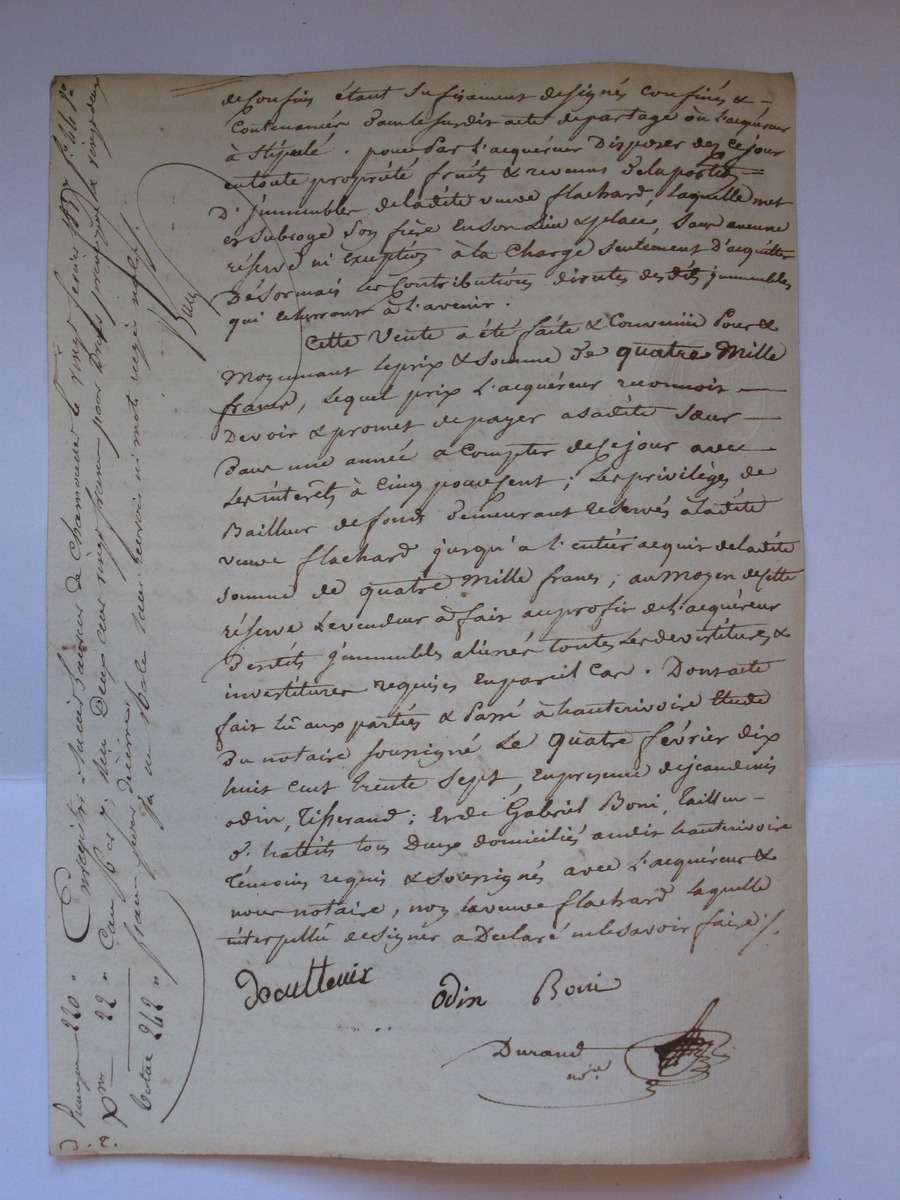 de confins étant sufisament désignés confinés &
Contenancés dans le susdit acte de partage où l'acquéreur
à Stipulé. pour Par l'acquéreur Disposer dez ce jour
en toute propriété fruits & revenus de la portion
D'immeubles de ladite veuve flachard, laquelle met
et subroge son frère en son Lieu & place, Sans aucune
réserve ni exception à la Charge seulement D'acquitter
Désormais les Contributions directes desdits immeubles
qui écherront à l'avenir.
Cette Vente a été faite & Convenüe Pour &
Moyennant le prix & Somme De quatre Mille
francs, lequel prix L'acquéreur reconnoit
Devoir & promet de payer a sadite Sœur
Dans une année a Compter de ce jour avec
Les interêts à Cinq pour cent; Les privilèges de
Bailleur de fonds demeurant reservés à ladite
veuve flachard jusqu'a l'entier acquit de ladite
somme de quatre Mille francs; au Moyen de cette
réserve Le vendeur a fait au profit de L'acquéreur
Desdits immeubles aliénés toutes Les devestitures &
investitures requises En pareil Cas. Dont acte
fait Lû aux parties & Passé à hauterivoire Etude
Du notaire soussigné Le Quatre février dix
huit cent trente Sept, En présence de jean denis
odin, Tisserand; Et de Gabriel Boni, Tailleur
d'habits tous Deux domiciliés audit hauterivoire
Témoins requis & soussignés avec L'acquéreur &
nous notaire, non la veuve flachard laquelle
interpellée de signer a Déclaré ne le savoir faire ./.
odin Boni
Durand
nore
Enregistré à Saint Laurent de Chamousset le février 1837 fo 44 Ro
Reçu Deux cent vingt francs pour Droit principal & vingt deux
francs pour décime.
220 "
22 "
Total 242 "